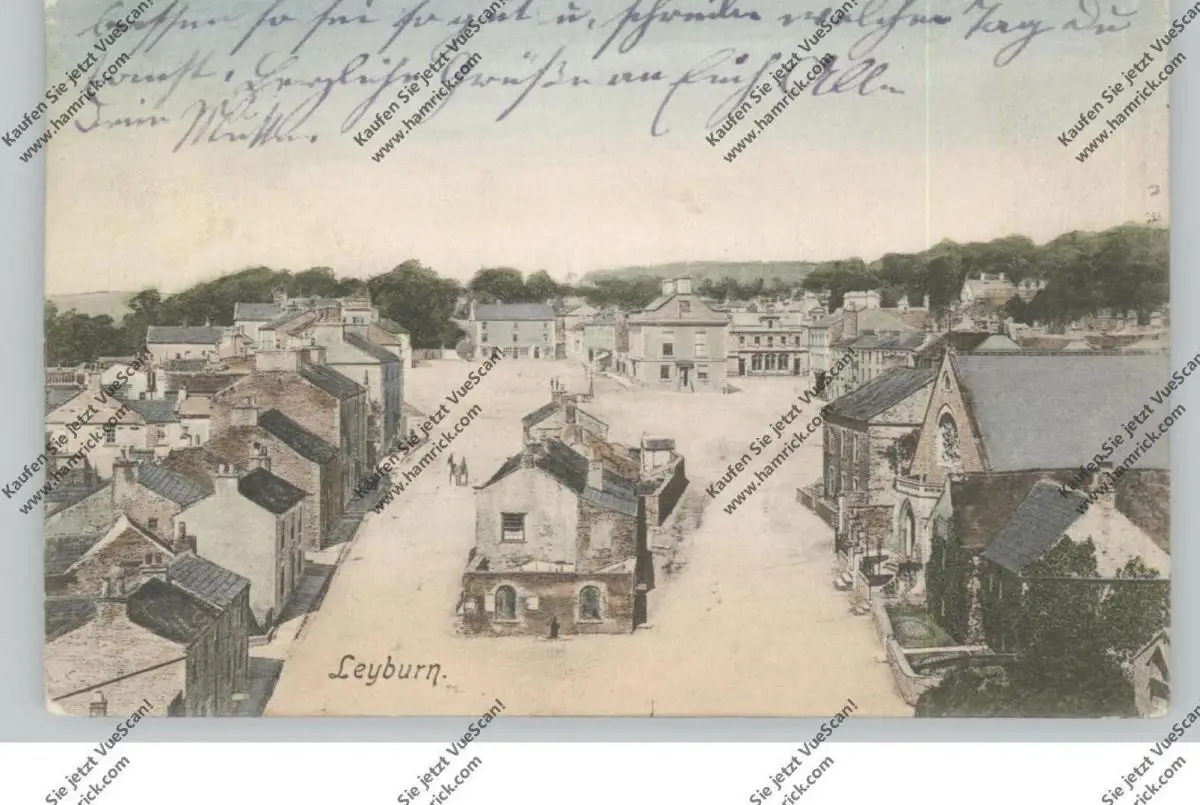 lassen so sei so gut u. schreibe welchen Tag Du
kommst. Herzliche Grüße an Euch Alle
Deine Mutter.
Leyburn.
Kaufen Sie jetzt VueScan!
(www.hamrick.com)
Kaufen Sie jetzt VueScan!
(www.hamrick.com)
Kaufen Sie jetzt VueScan!
(www.hamrick.com)
Kaufen Sie jetzt VueScan!
(www.hamrick.com)
Kaufen Sie jetzt VueScan!
(www.hamrick.com)
Kaufen Sie jetzt VueScan!
(www.hamrick.com)
Kaufen Sie jetzt VueScan!
(www.hamrick.com)
Kaufen Sie jetzt VueScan!
(www.hamrick.com)
Sie jetzt VueScan!
mrick.com)
Sie jetzt VueScan!
mrick.com)
Sie jetzt VueScan!
mrick.com)
Sie jetzt
mrick.com)